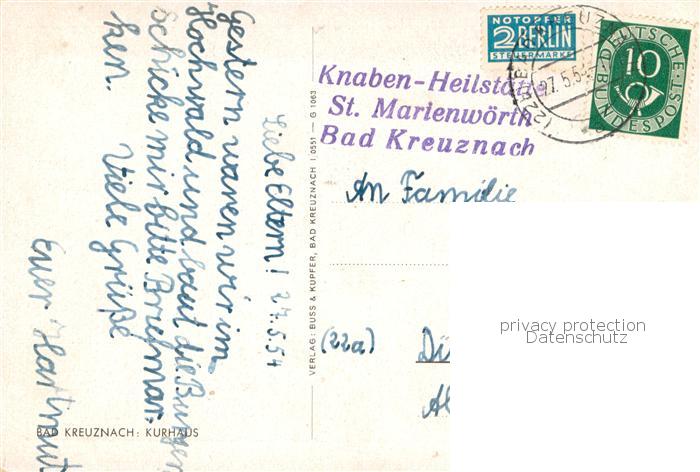 NOTOPFER
2 BERLIN
STEUERMARKE
DEUTSCHE
10
BUNDESPOST
27.5.5
Knaben-Heilstätte
St. Marienwörth
Bad Kreuznach
Liebe Eltern! 27.5.54
Gestern waren wir im
Hochwald und baut die Burgen
Schicke mir bitte Briefmar-
ken. Viele Grüße
Euer Hartmut
VERLAG: BUSS & KUPFER, BAD KREUZNACH I 0551 — G 1063
An Familie
(22a) Dü
Al
privacy protection
Datenschutz
BAD KREUZNACH: KURHAUS